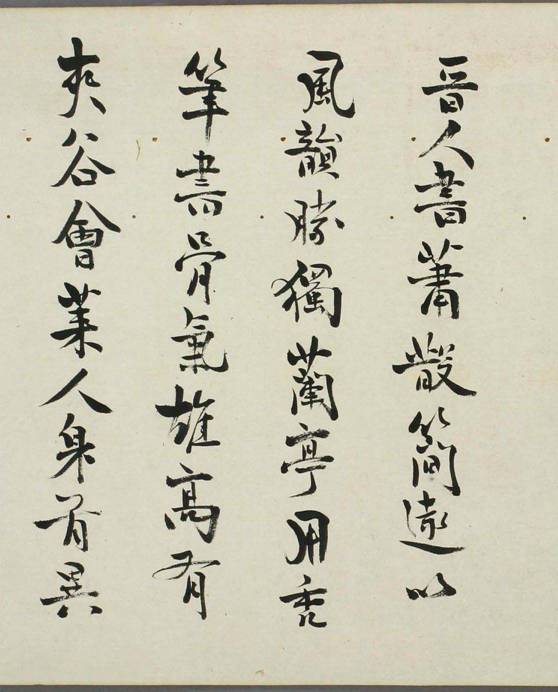 晋人書蕭散簡遠以
風韻勝獨蘭亭用禿
筆書骨氣雄高有
夾谷會莱人身首異